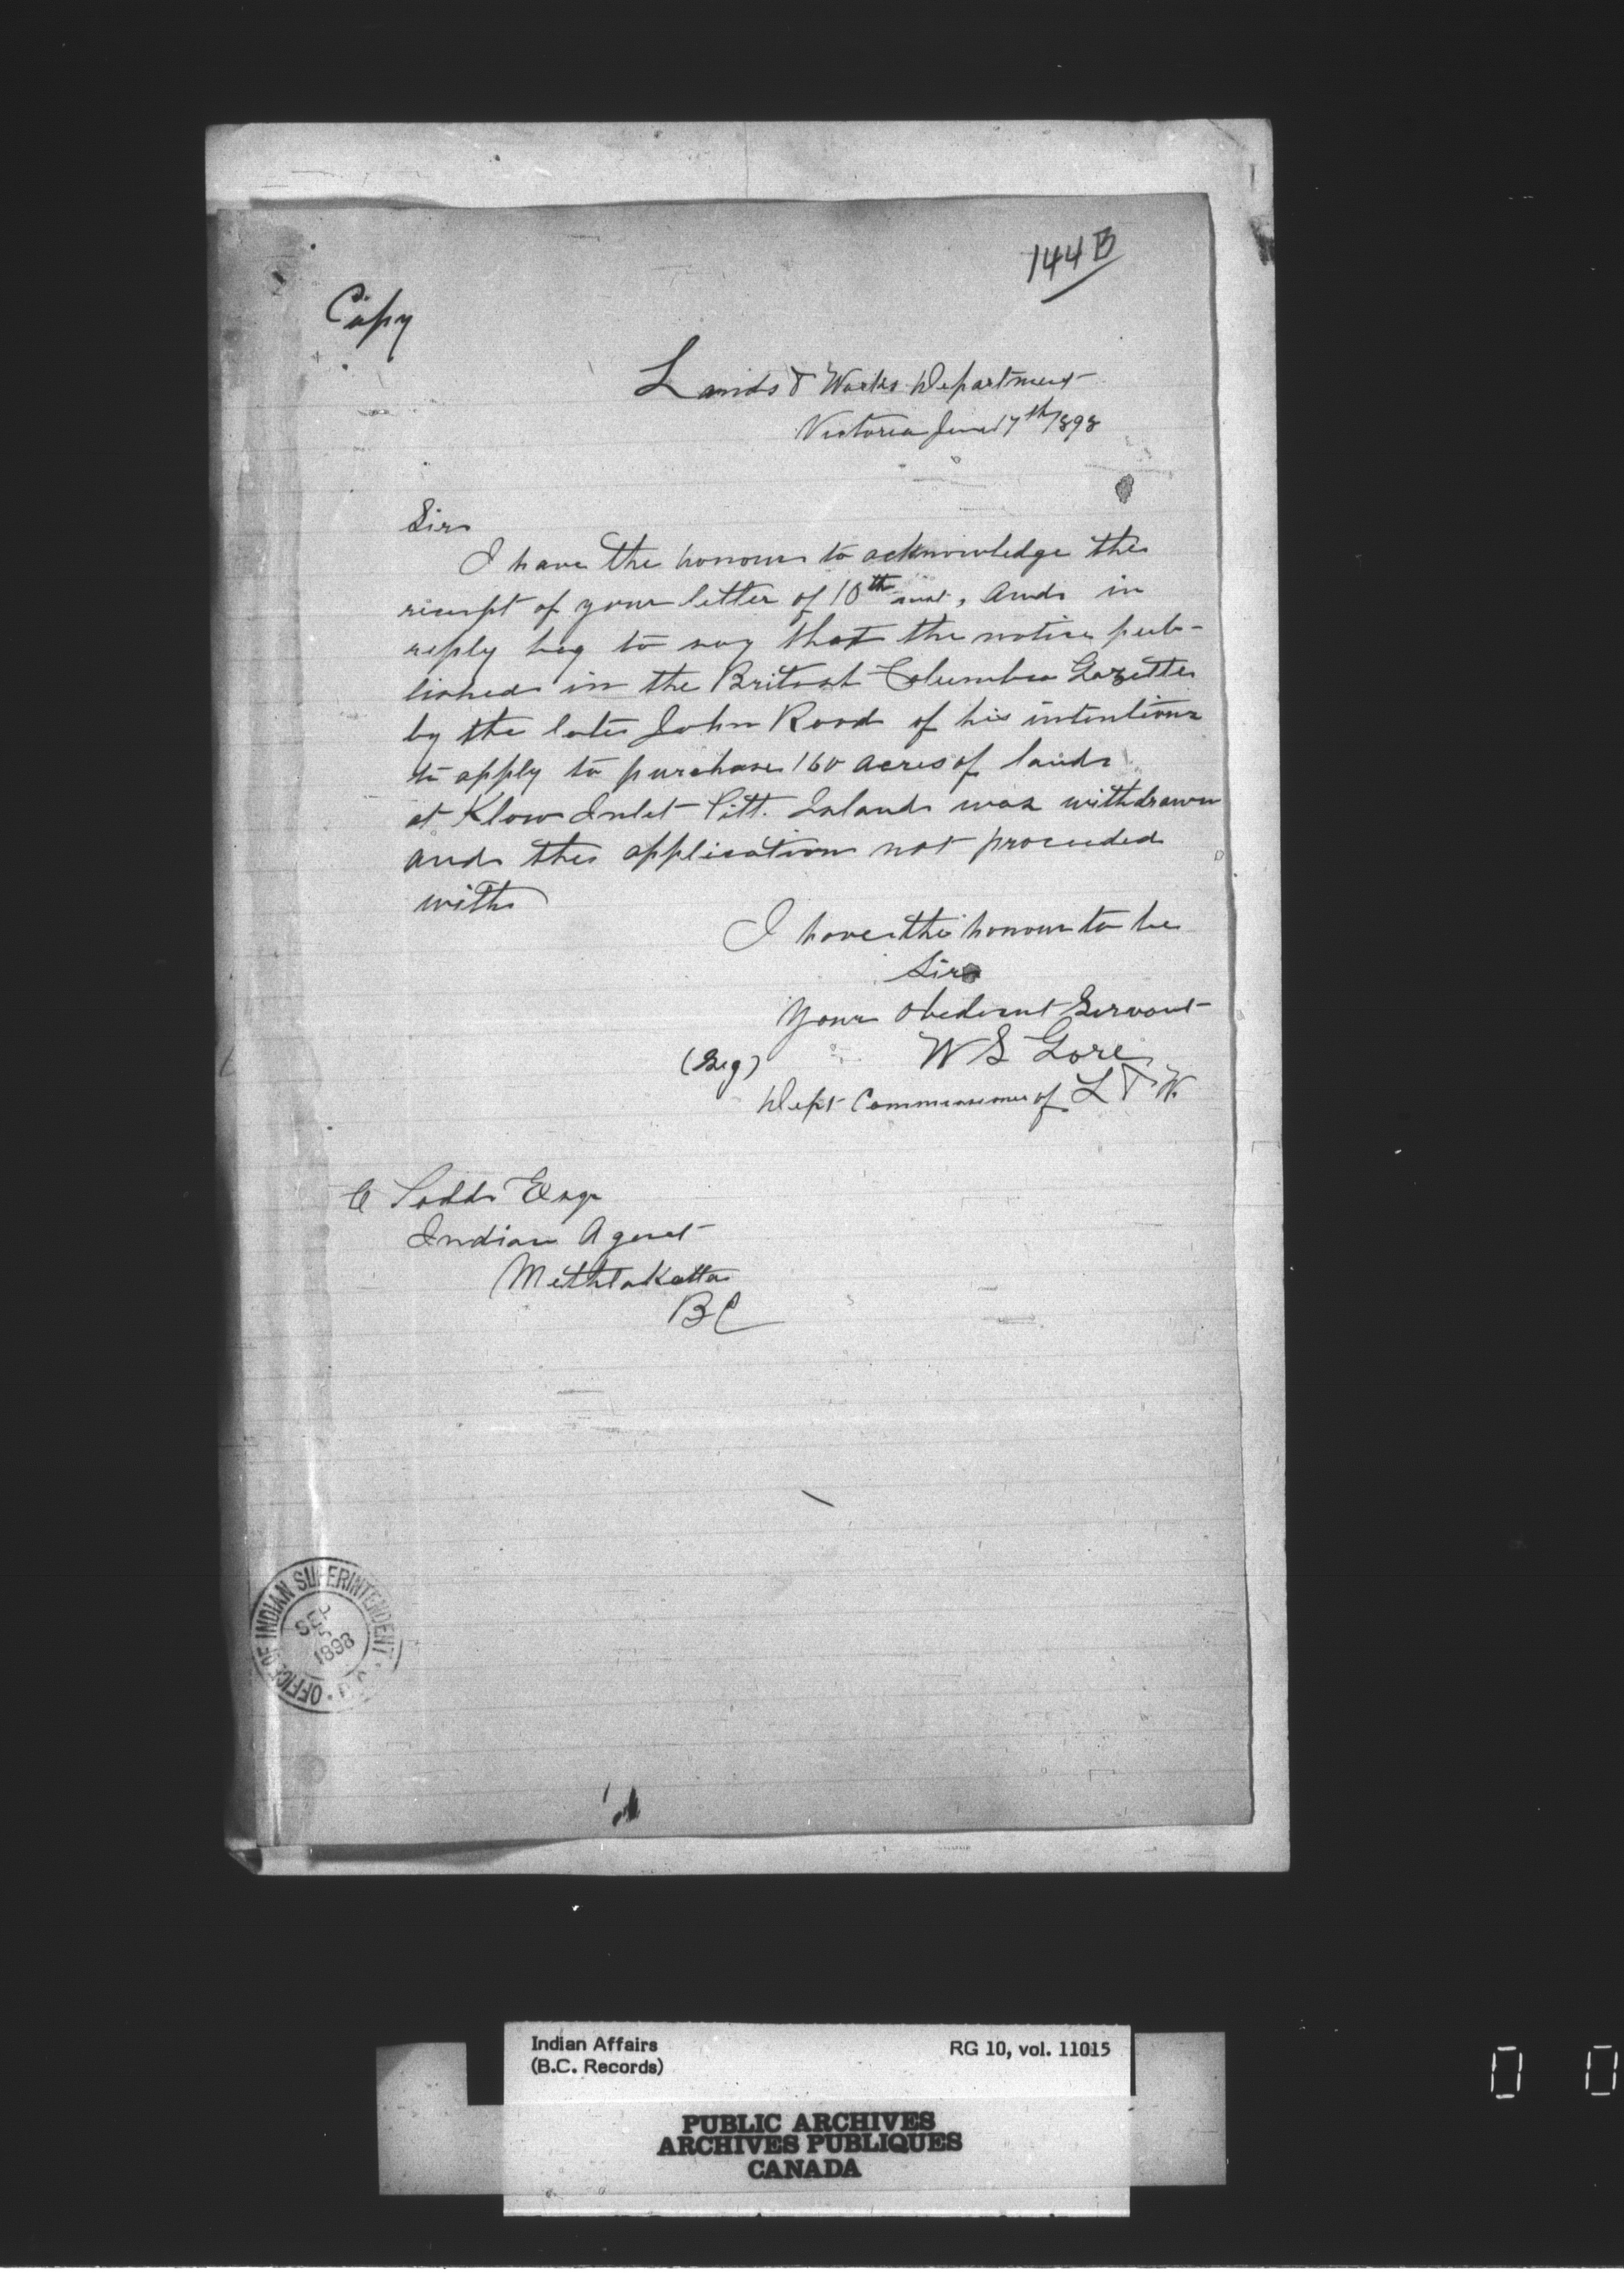 144 B
Copy
Lands & Works Department
Victoria June 17th/1898
Sir
I have the honour to acknowledge the
receipt of your letter of 10th inst, and in
reply beg to say that the notice pub-
lished in the British Columbia Gazette
by the late John Rood of his intention
to apply to purchase 160 acres of land
at Klow Inlet Pitt. Island was withdrawn
and the application not proceeded
with
I have the honour to be
Sir
Your obedient Servant
(Sig) W S Gore
Dept Commissioner of L & W.
C Todd Esqr
Indian Agent
Methlakatta
BC
OFFICE OF INDIAN SUPERINTENDENT · B.C. ·
SEP
5
1898
Indian Affairs RG 10, vol. 11015
(B.C. Records)
PUBLIC ARCHIVES
ARCHIVES PUBLIQUES
CANADA
0 0